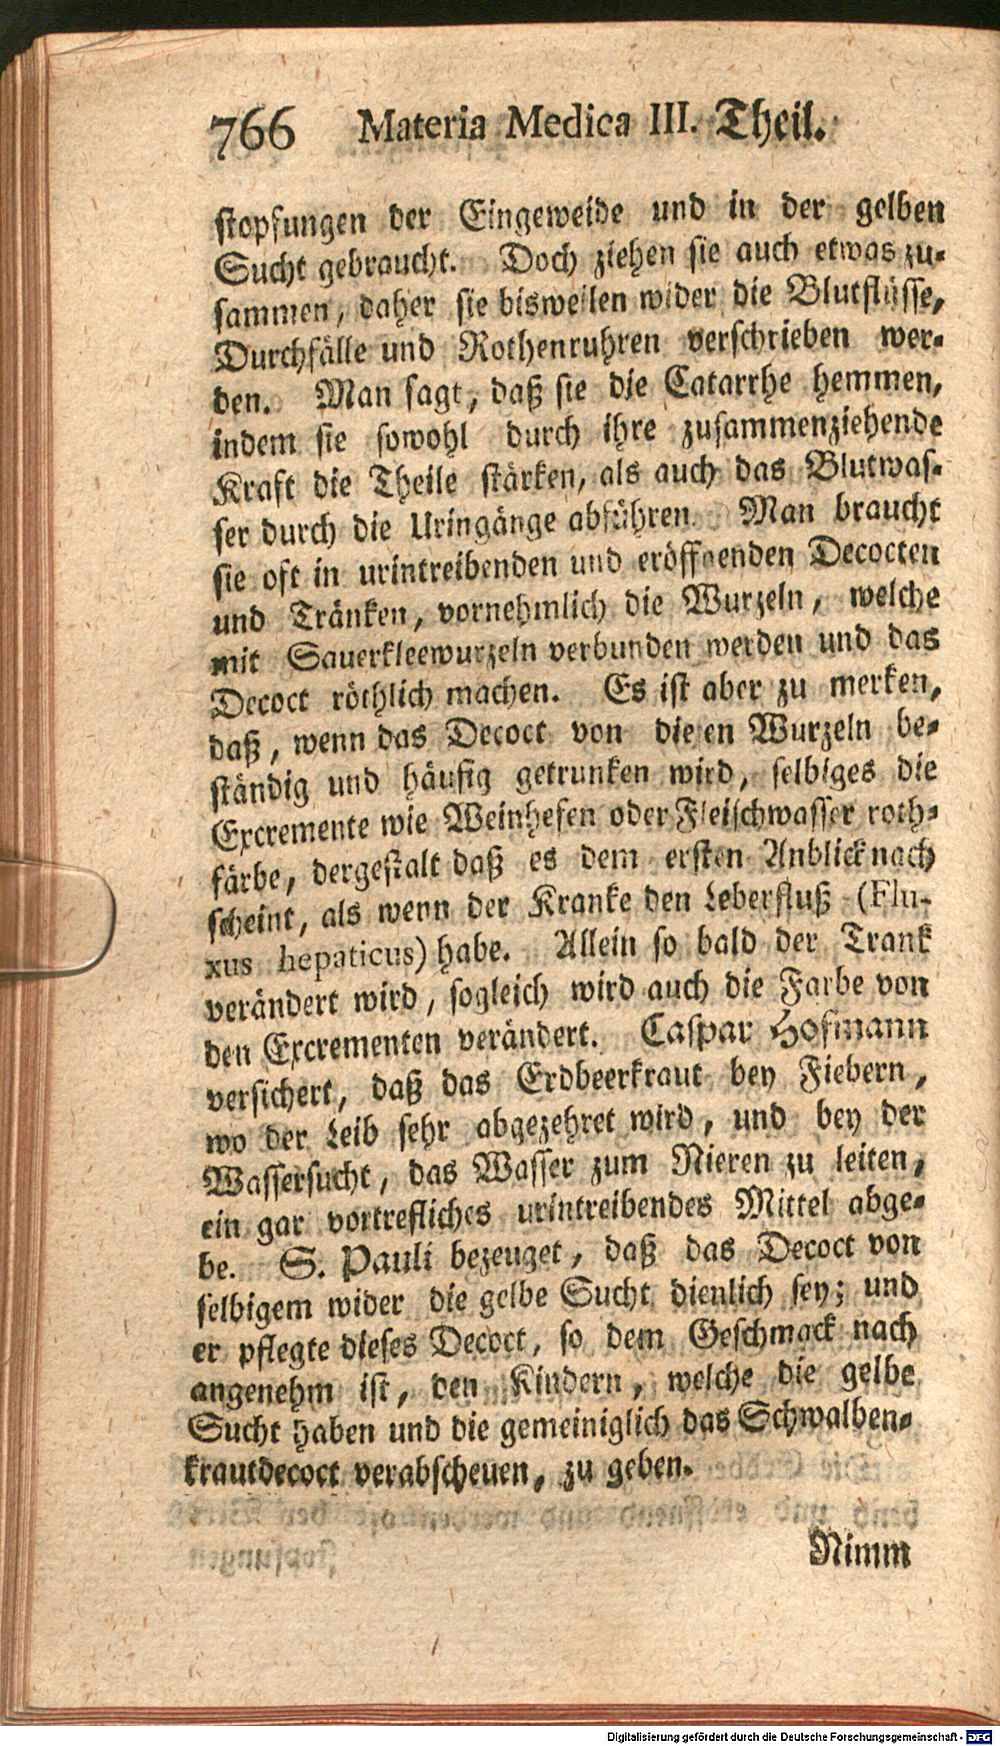 766 Materia Medica III. Theil.
stopfungen der Eingeweide und in der gelben
Sucht gebraucht. Doch ziehen sie auch etwas zu-
sammen, daher sie bisweilen wider die Blutflüsse,
Durchfälle und Rothenruhren verschrieben wer-
den. Man sagt, daß sie die Catarrhe hemmen,
indem sie sowohl durch ihre zusammenziehende
Kraft die Theile stärken, als auch das Blutwas-
ser durch die Uringänge abführen. Man braucht
sie oft in urintreibenden und eröffnenden Decocten
und Tränken, vornehmlich die Wurzeln, welche
mit Sauerkleewurzeln verbunden werden und das
Decoct röthlich machen. Es ist aber zu merken,
daß, wenn das Decoct von diesen Wurzeln be-
ständig und häufig getrunken wird, selbiges die
Excremente wie Weinhefen oder Fleischwasser roth-
färbe, dergestalt daß es dem ersten Anblick nach
scheint, als wenn der Kranke den Leberfluß (Flu-
xus hepaticus) habe. Allein so bald der Trank
verändert wird, sogleich wird auch die Farbe von
den Excrementen verändert. Caspar Hofmann
versichert, daß das Erdbeerkraut bey Fiebern,
wo der Leib sehr abgezehret wird, und bey der
Wassersucht, das Wasser zum Nieren zu leiten,
ein gar vortrefliches urintreibendes Mittel abge-
be. S. Pauli bezeuget, daß das Decoct von
selbigem wider die gelbe Sucht dienlich sey; und
er pflegte dieses Decoct, so dem Geschmack nach
angenehm ist, den Kindern, welche die gelbe
Sucht haben und die gemeiniglich das Schwalben-
krautdecoct verabscheuen, zu geben.
Nimm
Digitalisierung gefördert durch die Deutsche Forschungsgemeinschaft - DFG